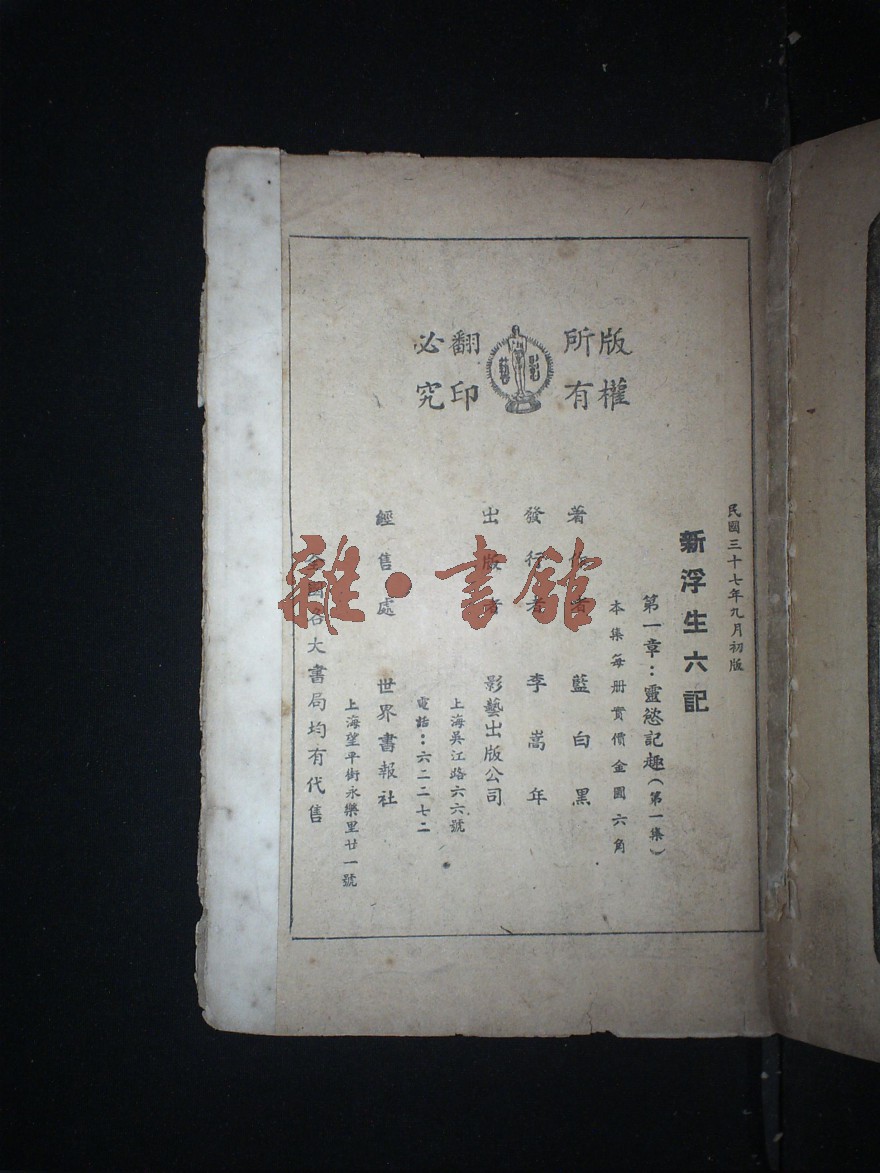 版權所有
翻印必究
影藝
民國三十七年九月初版
新浮生六記
第一章：靈慾記趣（第一集）
本集每册實價金圓六角
著作者 藍白黑
發行者 李嵩年
出版者 影藝出版公司
上海吳江路六六號
電話：六二二七二
經售處 世界書報社
上海望平街永樂里廿一號
全國各大書局均有代售
雜·書館